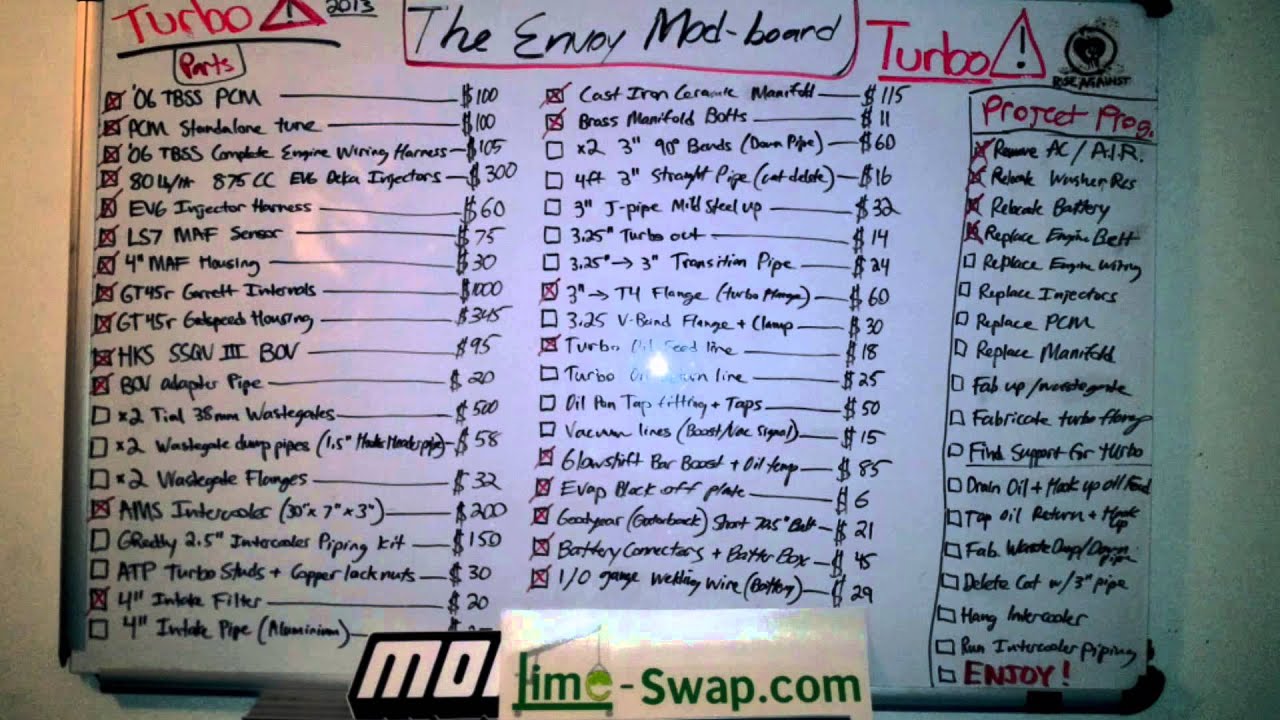 Turbo
2013
The Envoy Mod-board
Turbo
RISE AGAINST
Parts
'06 TBSS PCM $100
PCM Standalone tune $100
'06 TBSS Complete Engine Wiring Harness $105
80 lb/hr 875 CC EV6 Deka Injectors $300
EV6 Injector Harness $60
LS7 MAF Sensor $75
4" MAF Housing $30
GT45r Garrett Internals $1000
GT45r Godspeed Housing $345
HKS SSQV III BOV $95
BOV adapter Pipe $20
x2 Tial 38mm Wastegates $500
x2 Wastegate dump pipes (1.5" $58
x2 Wastegate Flanges $32
AMS Intercooler (30" x 7" x 3") $200
GReddy 2.5" Intercooler Piping Kit $150
ATP Turbo Studs + Copper lock nuts $30
4" Intake Filter $20
4" Intake Pipe (Aluminium)
Cast Iron Ceramic Manifold $115
Brass Manifold Bolts $11
x2 3" 90° Bends (Down Pipe) $60
4ft 3" Straight Pipe (cat delete) $16
3" J-pipe Mild Steel up $32
3.25" Turbo out $14
3.25" → 3" Transition Pipe $24
3" → T4 Flange (turbo flange) $60
3.25 V-Band Flange + Clamp $30
Turbo Oil Feed line $18
Turbo Oil Return line $25
Oil Pan Tap fitting + Taps $50
Vacuum lines (Boost/Vac Signal) $15
Glowshift Bar Boost + Oil temp $85
Evap Block off plate $6
Goodyear (Gatorback) Short 72.5" Belt $21
Battery Connectors + Batter Box $45
1/0 gauge Welding Wire (Battery) $29
Project Prog.
Remove AC / A.I.R.
Relocate Washer Res
Relocate Battery
Replace Engine Belt
Replace Engine Wiring
Replace Injectors
Replace PCM
Replace Manifold
Fab up /wastegate
Fabricate turbo flange
Find Support for turbo
Drain Oil + Hook up oil Feed
Tap Oil Return + Hook up
Fab Waste Dump/Down pipe
Delete Cat w/ 3" pipe
Hang Intercooler
Run Intercooler piping
ENJOY!
MO
Jime-Swap.com